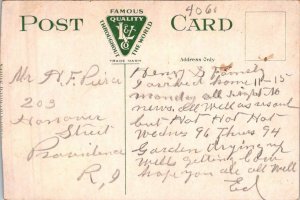 FAMOUS
QUALITY
THROUGHOUT THE WORLD
TRADE MARK
POST CARD
4061
Address Only
Mr H. F. Peirce
203
Hanover
Street
Providence
R, I
Henry & Family
I arrived home 11-15
monday all right No
news. all Well as usual
but Hot Hot Hot
Wednes 96 Thurs 94
Garden drying up
Well getting low
hope you are all Well
Ed